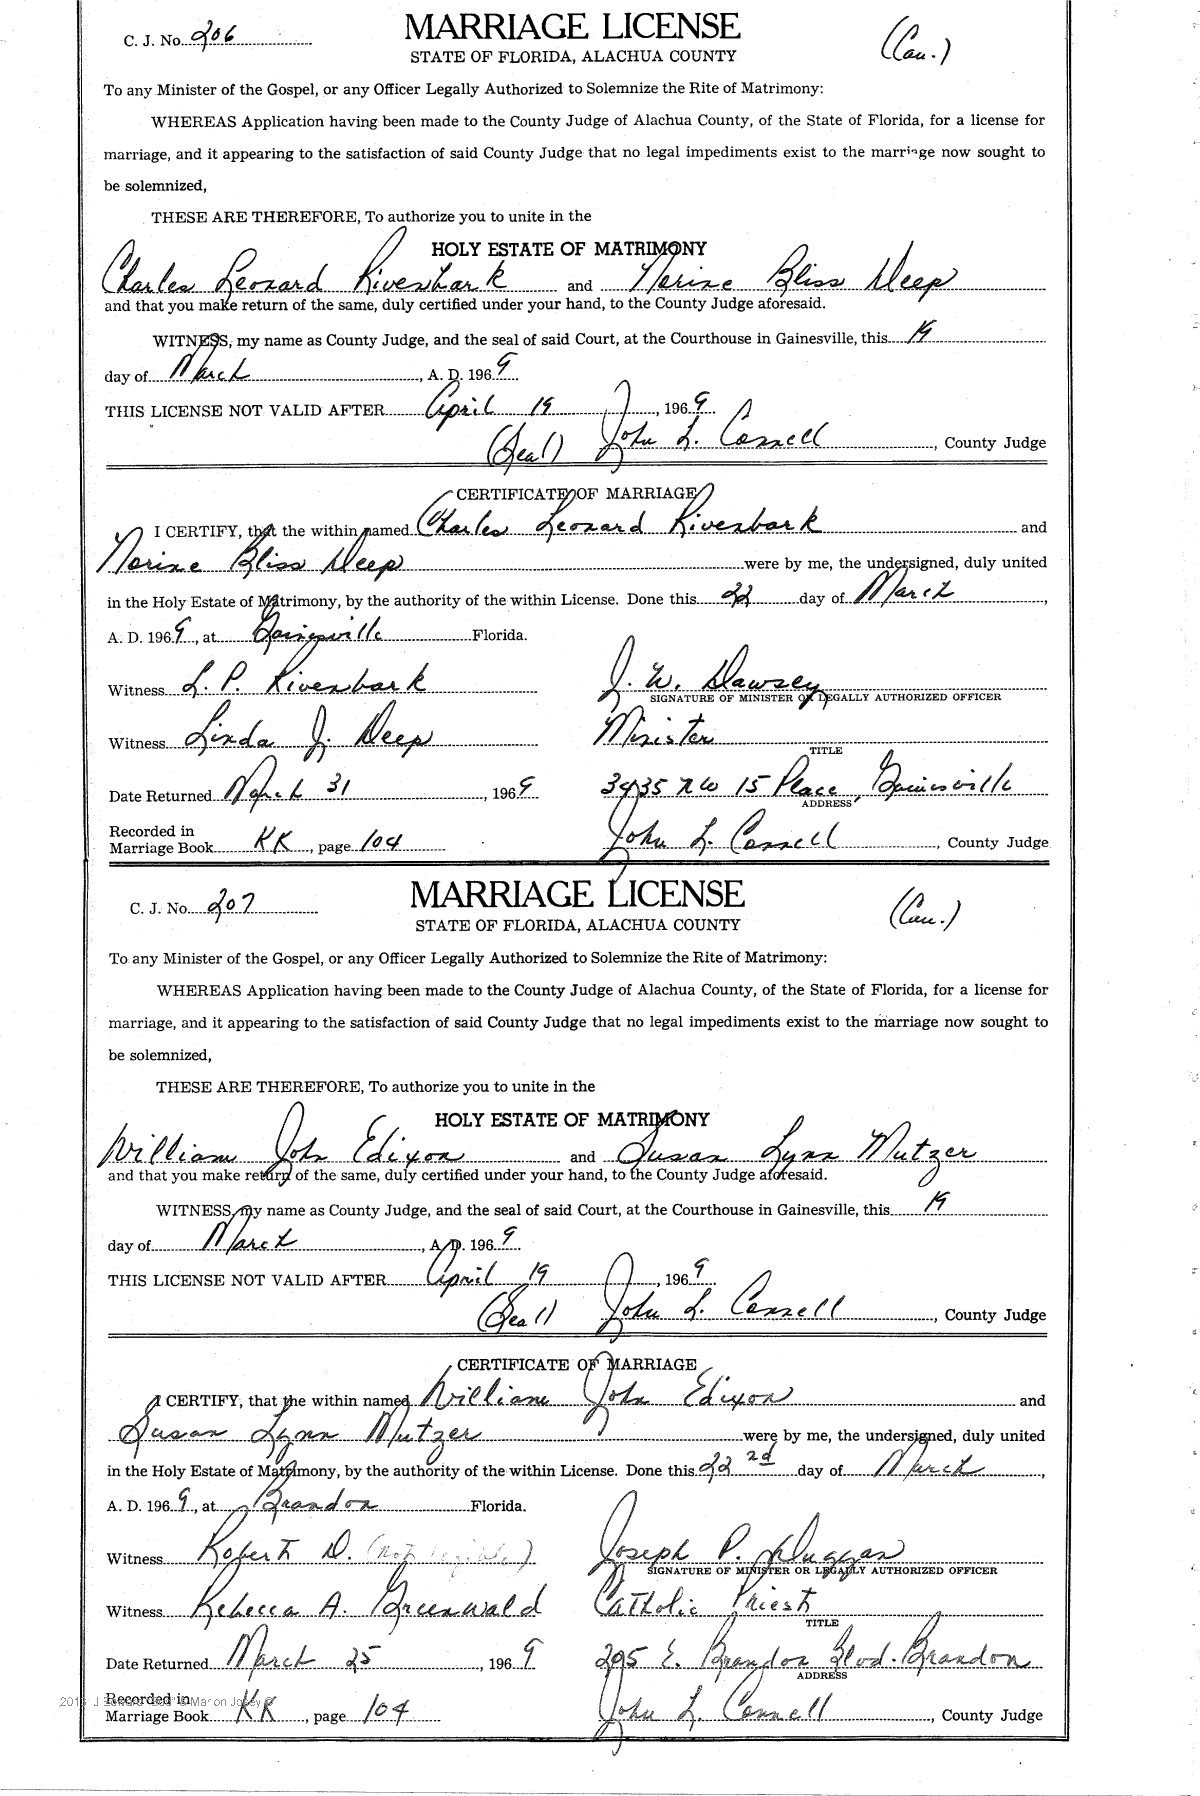 C. J. No. 206
MARRIAGE LICENSE
(Cau.)
STATE OF FLORIDA, ALACHUA COUNTY
To any Minister of the Gospel, or any Officer Legally Authorized to Solemnize the Rite of Matrimony:
WHEREAS Application having been made to the County Judge of Alachua County, of the State of Florida, for a license for
marriage, and it appearing to the satisfaction of said County Judge that no legal impediments exist to the marriage now sought to
be solemnized,
THESE ARE THEREFORE, To authorize you to unite in the
HOLY ESTATE OF MATRIMONY
Charles Leonard Rivenbark and Norine Bliss Deep
and that you make return of the same, duly certified under your hand, to the County Judge aforesaid.
WITNESS, my name as County Judge, and the seal of said Court, at the Courthouse in Gainesville, this 19
day of March, A. D. 1969
THIS LICENSE NOT VALID AFTER April 19, 1969
(Seal) John L. Connell, County Judge
CERTIFICATE OF MARRIAGE
I CERTIFY, that the within named Charles Leonard Rivenbark and
Norine Bliss Deep were by me, the undersigned, duly united
in the Holy Estate of Matrimony, by the authority of the within License. Done this 22 day of March,
A. D. 1969, at Gainesville Florida.
Witness L. P. Rivenbark J. W. Dawsey
SIGNATURE OF MINISTER OR LEGALLY AUTHORIZED OFFICER
Witness Linda J. Deep Minister
TITLE
Date Returned March 31, 1969 3435 NW 15 Place, Gainesville
ADDRESS
Recorded in
Marriage Book KK, page 104 John L. Connell, County Judge
C. J. No. 207
MARRIAGE LICENSE
(Cau.)
STATE OF FLORIDA, ALACHUA COUNTY
To any Minister of the Gospel, or any Officer Legally Authorized to Solemnize the Rite of Matrimony:
WHEREAS Application having been made to the County Judge of Alachua County, of the State of Florida, for a license for
marriage, and it appearing to the satisfaction of said County Judge that no legal impediments exist to the marriage now sought to
be solemnized,
THESE ARE THEREFORE, To authorize you to unite in the
HOLY ESTATE OF MATRIMONY
William John Edixon and Susan Lynn Mutzer
and that you make return of the same, duly certified under your hand, to the County Judge aforesaid.
WITNESS, my name as County Judge, and the seal of said Court, at the Courthouse in Gainesville, this 19
day of March, A. D. 1969
THIS LICENSE NOT VALID AFTER April 19, 1969
(Seal) John L. Connell, County Judge
CERTIFICATE OF MARRIAGE
I CERTIFY, that the within named William John Edixon and
Susan Lynn Mutzer were by me, the undersigned, duly united
in the Holy Estate of Matrimony, by the authority of the within License. Done this 22nd day of March,
A. D. 1969, at Brandon Florida.
Witness Robert D. (not legible) Joseph P. Duggan
SIGNATURE OF MINISTER OR LEGALLY AUTHORIZED OFFICER
Witness Rebecca A. Greenwald Catholic Priest
TITLE
Date Returned March 25, 1969 205 E. Brandon Blvd. Brandon
ADDRESS
Recorded in
Marriage Book KK, page 104 John L. Connell, County Judge